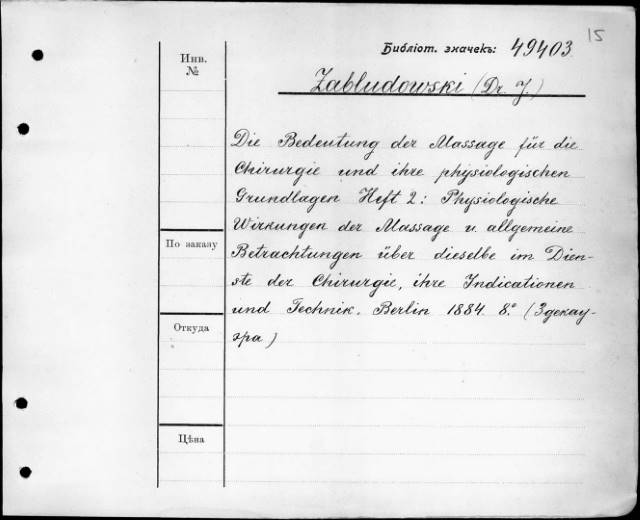 15
Библіот. значекъ: 49403
Инв.
№
Zabludowski (Dr. J.)
Die Bedeutung der Massage für die
Chirurgie und ihre physiologischen
Grundlagen Heft 2: Physiologische
Wirkungen der Massage u. allgemeine
По заказу
Betrachtungen über dieselbe im Dien-
ste der Chirurgie, ihre Indicationen
und Technik. Berlin 1884. 8.° (3 декау-
Откуда
эра)
Цѣна